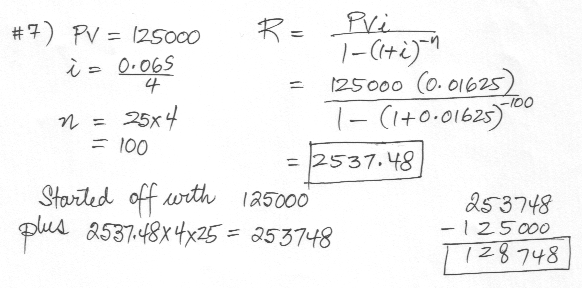 #7) PV = 125000
i = 0.065/4
n = 25x4
= 100
R = PVi / 1-(1+i)^-n
= 125000 (0.01625) / 1-(1+0.01625)^-100
= 2537.48
Started off with 125000
plus 2537.48x4x25 = 253748
253748
-125000
128748